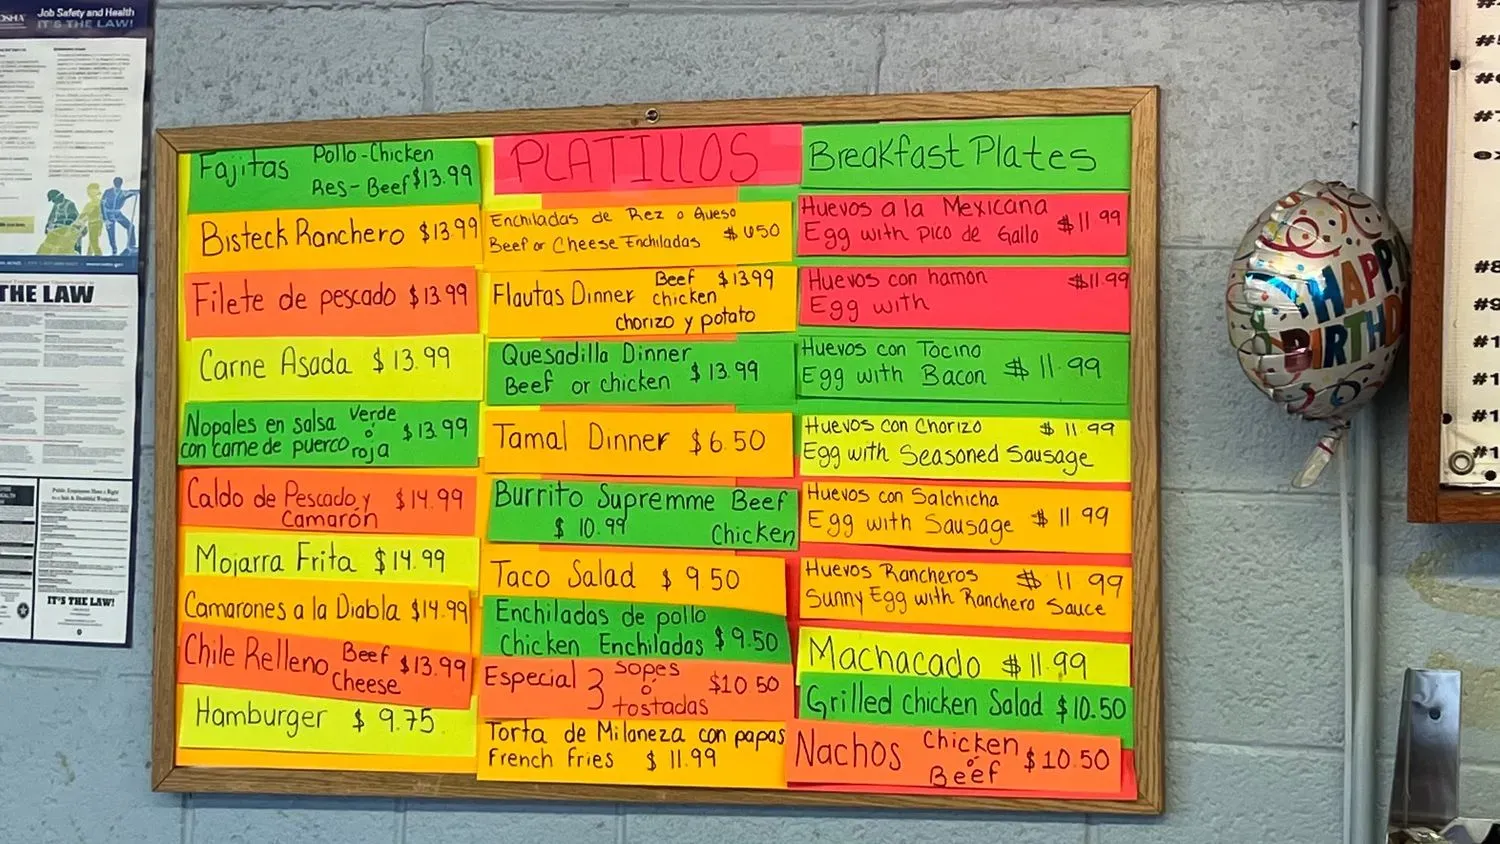 OSHA
Job Safety and Health
IT'S THE LAW!
THE LAW
IT'S THE LAW!
Fajitas Pollo-Chicken
Res-Beef $13.99
Bisteck Ranchero $13.99
Filete de pescado $13.99
Carne Asada $13.99
Nopales en salsa Verde
ó
con carne de puerco roja $13.99
Caldo de Pescado y $14.99
Camarón
Mojarra Frita $14.99
Camarones a la Diabla $14.99
Chile Relleno Beef $13.99
Cheese
Hamburger $9.75
PLATILLOS
Enchiladas de Rez o Queso
Beef or Cheese Enchiladas
Flautas Dinner Beef $13.99
chicken
chorizo y potato
Quesadilla Dinner
Beef or chicken $13.99
Tamal Dinner $6.50
Burrito Supremme Beef
$10.99 Chicken
Taco Salad $9.50
Enchiladas de pollo
Chicken Enchiladas $9.50
Especial 3 sopes $10.50
ó
tostadas
Torta de Milaneza con papas
French Fries $11.99
Breakfast Plates
Huevos a la Mexicana
Egg with pico de Gallo $11.99
Huevos con hamon $11.99
Egg with
Huevos con Tocino
Egg with Bacon $11.99
Huevos con Chorizo $11.99
Egg with Seasoned Sausage
Huevos con Salchicha
Egg with Sausage $11.99
Huevos Rancheros $11.99
Sunny Egg with Ranchero Sauce
Machacado $11.99
Grilled Chicken Salad $10.50
Nachos Chicken $10.50
ó
Beef
HAPPY
BIRTHD
#7
#8